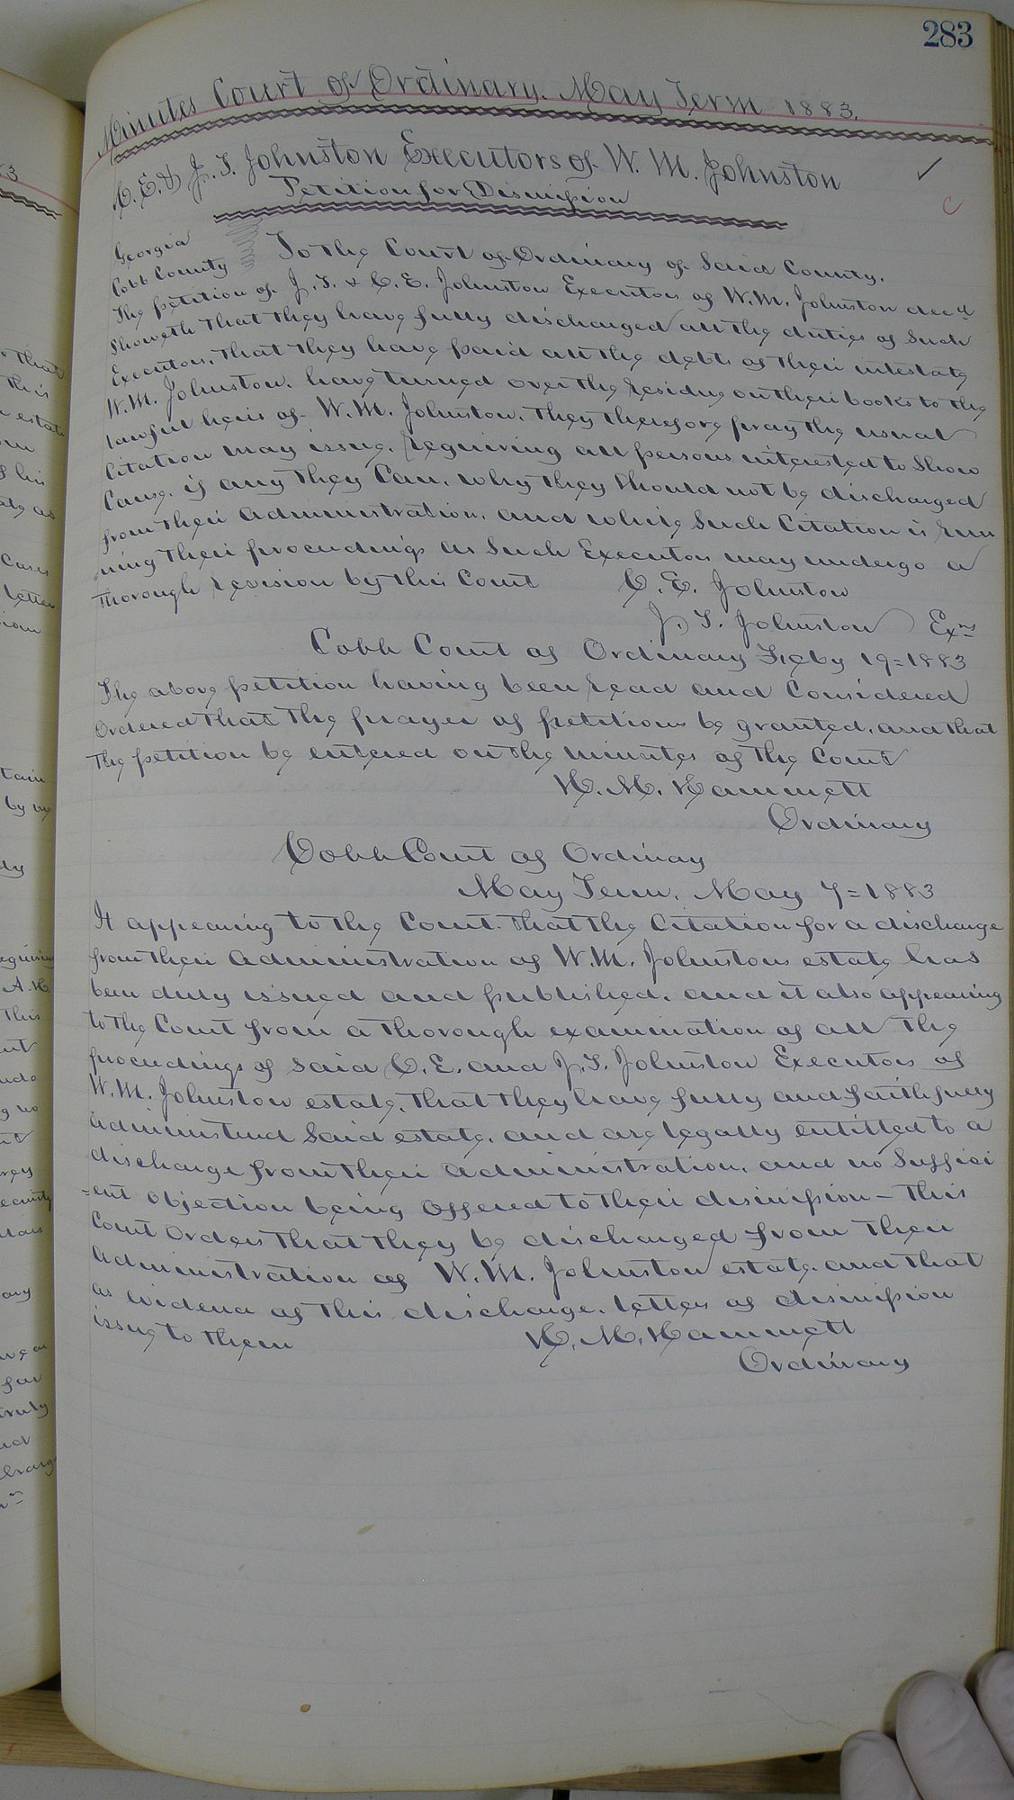 283
Minutes Court of Ordinary. May Term 1883.
C. E. & J. T. Johnston Executors of W. M. Johnston
Petition for Dismission
Georgia
Cobb County
To the Court of Ordinary of Said County.
The petition of J. T. & C. E. Johnston Executors of W. M. Johnston decd
Showeth that they have fully discharged all the duties of Such
Executors, that they have paid all the debts of their intestate
W. M. Johnston. have turned over the residue on their books to the
lawful heirs of W. M. Johnston. They therefore pray the usual
Citation may issue. requiring all persons interested to Show
Cause. if any they Can. why they Should not be discharged
from their administration. and while Such Citation is run
ning their proceedings as Such Executors may undergo a
thorough revision by this Court C. E. Johnston
J. T. Johnston Exrs
Cobb Court of Ordinary Feby 19=1883
The above petition having been read and Considered
Ordered that the prayer of petitions be granted. and that
the petition be entered on the minutes of the Court
H. M. Hammett
Ordinary
Cobb Court of Ordinay
May Term. May 7=1883
It appearing to the Court. that the Citation for a discharge
from their administration of W. M. Johnstons estate has
been duly issued and published. and it also appearing
to the Court from a thorough examination of all the
proceedings of said C. E. and J. T. Johnston Executors of
W. M. Johnston estate. that they have fully and faithfully
administered Said estate. and are legally entitled to a
discharge from their administration. and no Suffici
=ent objection being offered to their dismission — this
Court Orders that they be discharged from their
administration of W. M. Johnston estate. and that
as evidence of this discharge. letters of dismission
issue to them H. M. Hammett
Ordinary